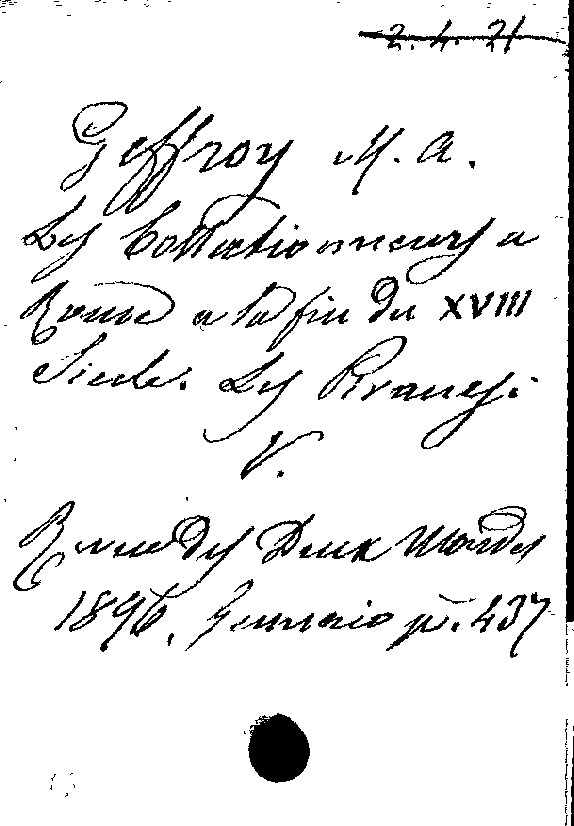 2. 4. 21
Geffroy M. A.
Les Collectionneurs a
Rome a la fin du XVIII
Siecle. Les Piranesi.
V.
Revue des Deux Mondes
1896. Gennaio p. 437